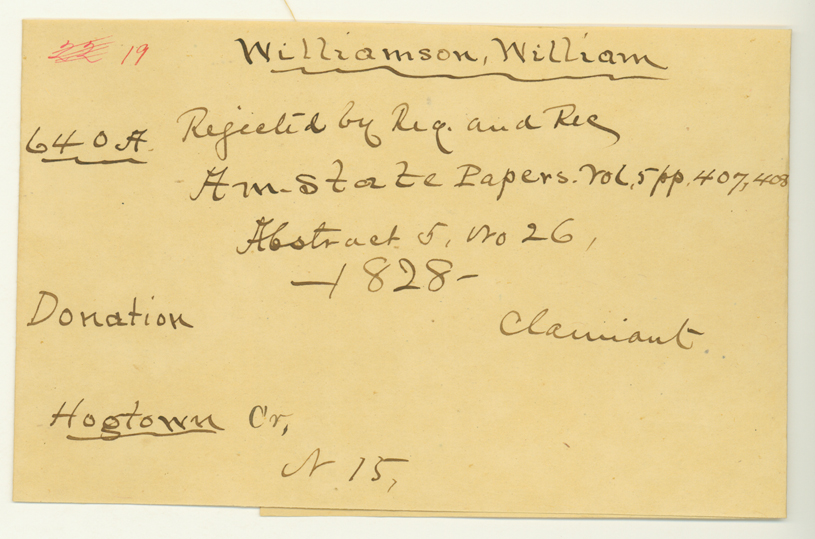 19 Williamson, William
640 A. Rejected by Reg. and Rec
Am. State Papers. Vol. 5 pp. 407, 408
Abstract 5, No 26,
—1828—
Donation Clamiant.
Hogtown Cr,
N 15,